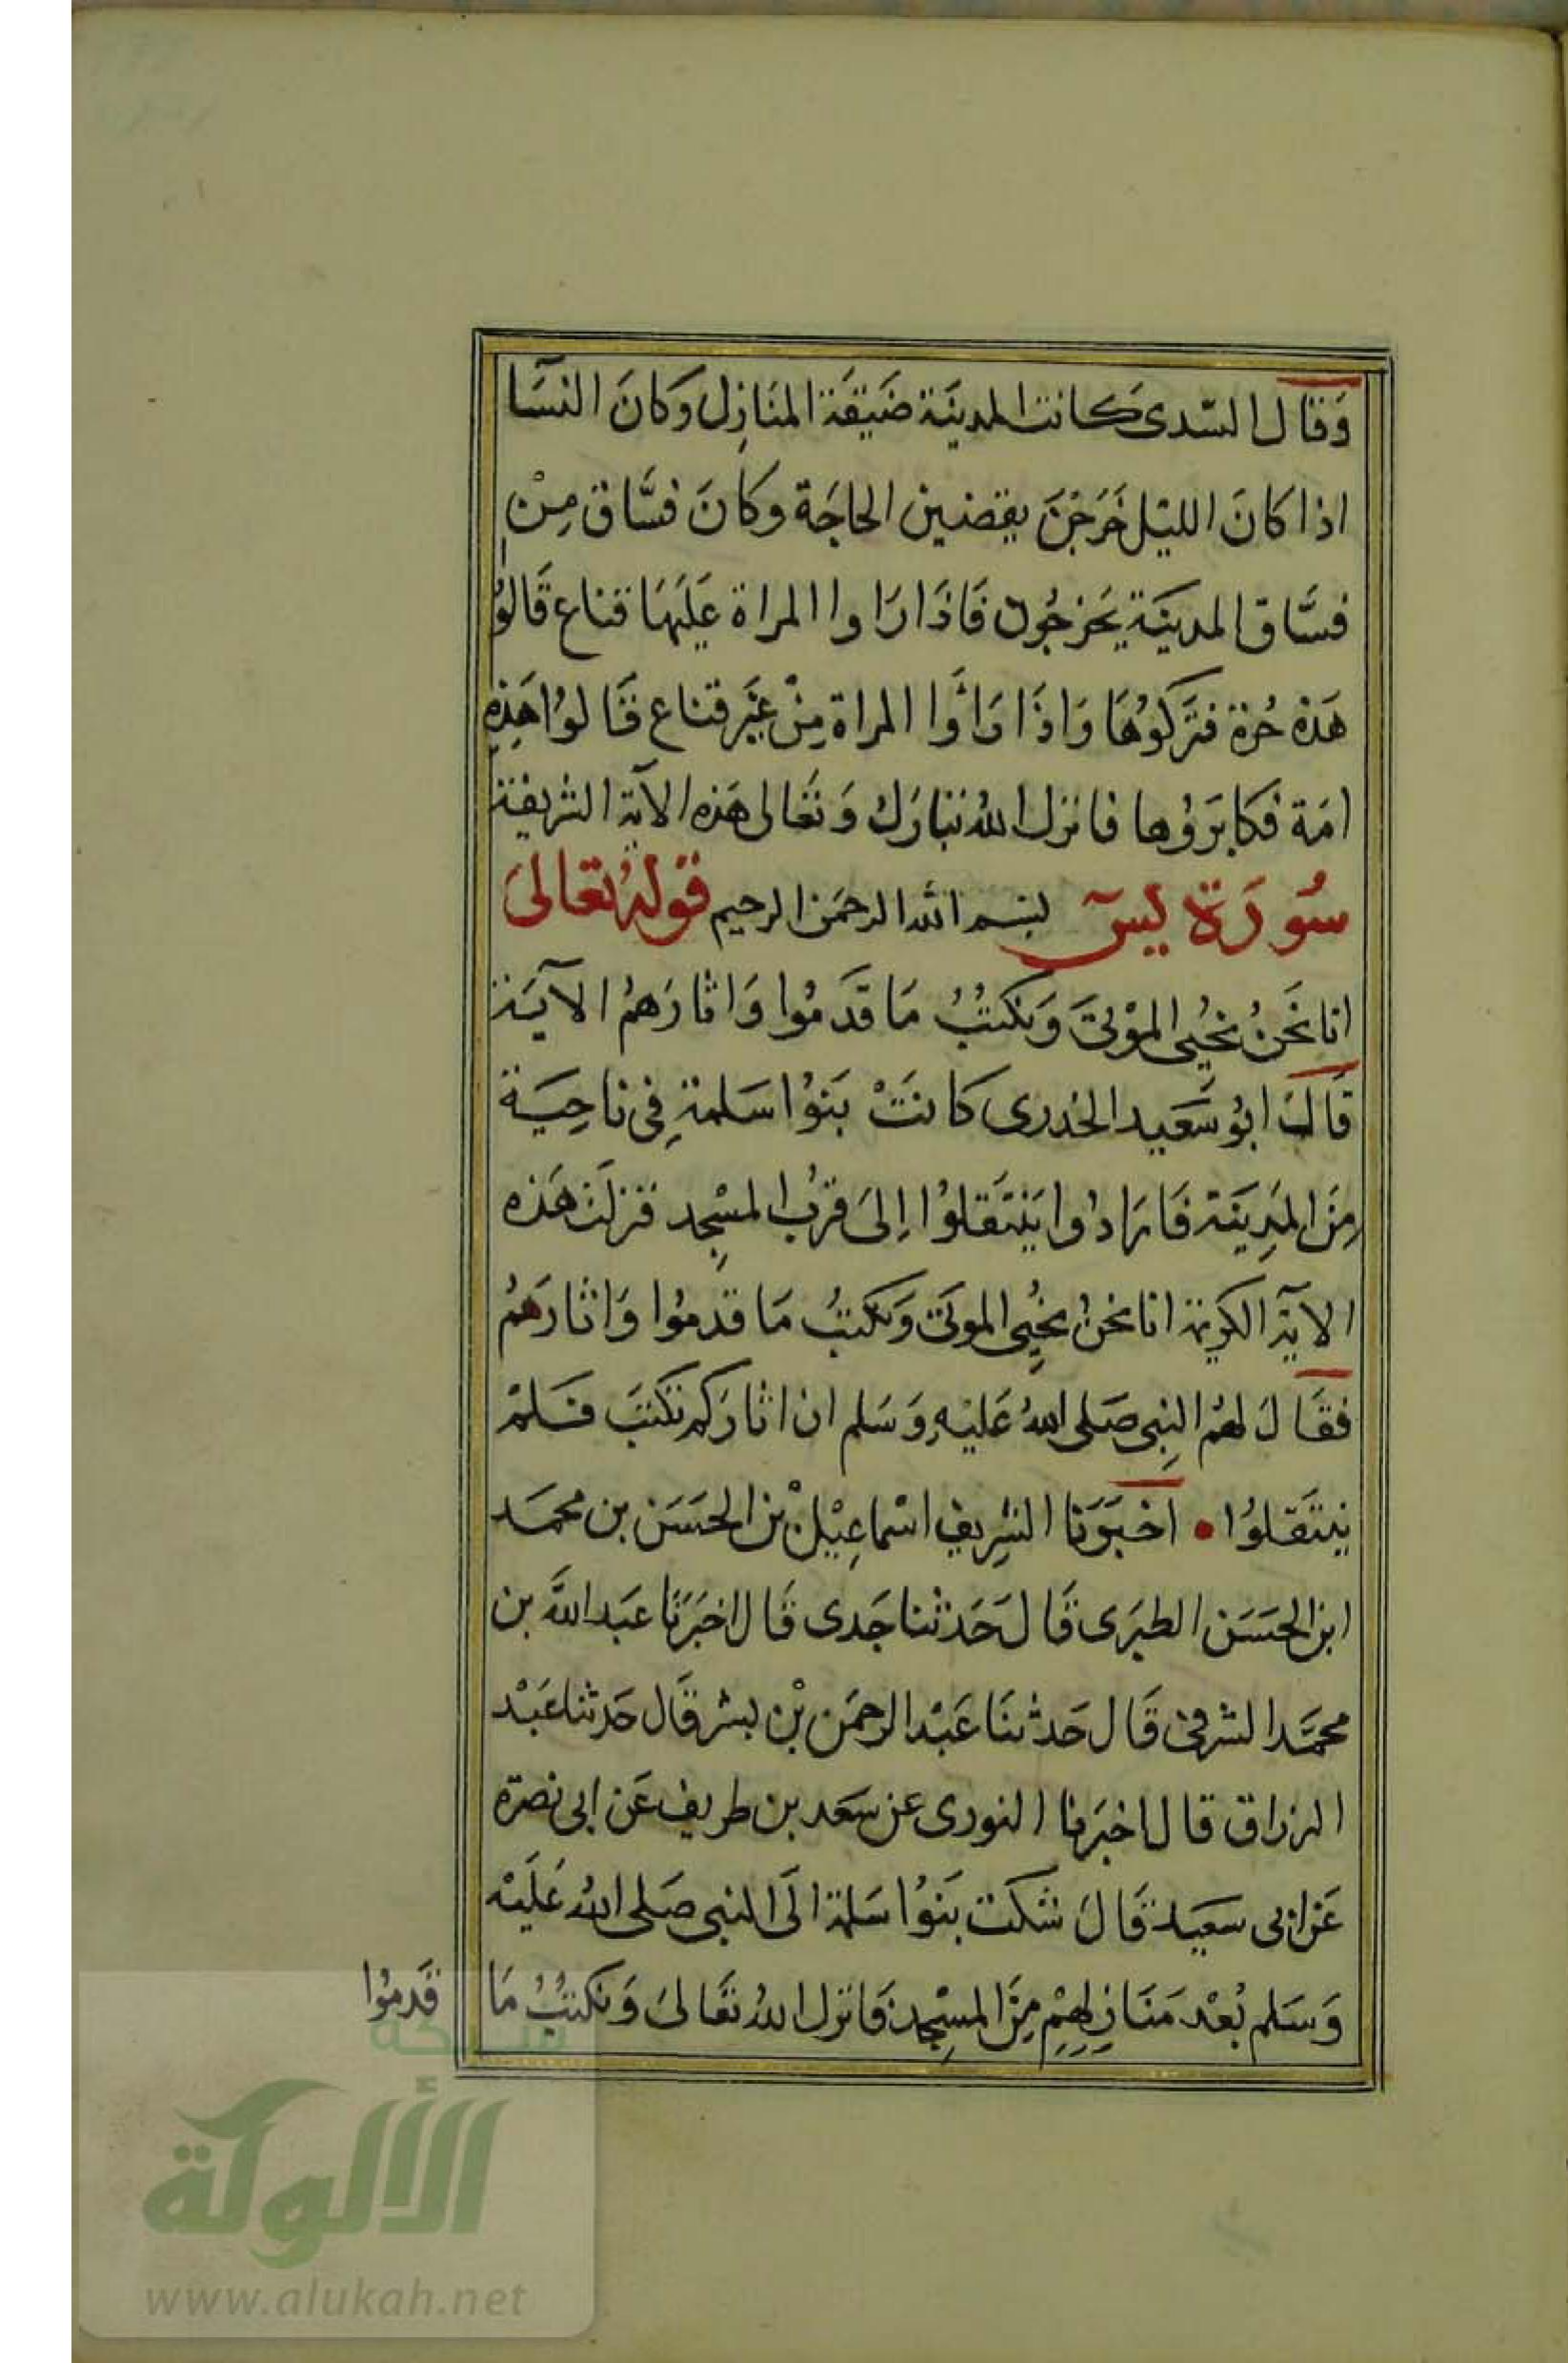 وَقَال السّدى كانت المدينَة ضَيقَة المنَازِل وَكانَ النسَآ
اذا كانَ الليْل خَرَجْنَ يقضين الحاجَة وكانَ فسَّاق مِنْ
فسَّاق المدينَة يَخرجُون فَاذَا رَاوا المراة عَليَهَا قناع قَالوُا
هَذه حُرة فتَركوُهَا وَاذَا رَاوَا المراة مِنْ غَيَر قناع قَالوُا هَذِهِ
امَة فكابرَوُها فانزل اللهُ تبَارَك وَتعَالى هَذه الآية الشريفة
سُورَة يسٓ بسم الله الرحمَن الرحيم قولهُ تعَالىَ
انا نَحنُ نحُيى الموْتىَ وَنكتبُ مَا قَدمُوا وَاثارَهمُ الآيَة
قَالَ ابوُ سَعَيد الخدرى كانَتْ بَنوُا سَلمةِ فى ناحِيَة
مِنَ المَدِينَة فَارَادُوا يَنتَقلوُا اِلىَ قربُ المسْجِد فنزلَت هَذه
الآية الكريمة انا نحنُ نحُيِى الموتىَ وَنكتبُ مَا قدمُوا وَاثارَهمُ
فقَالَ لهمُ النبِى صَلى اللهُ عَليْهِ وَسَلم ان اثارَكم تكتبَ فَلمْ
ينتَقلوُا • اخبَرَنا الشرِيف اسْماعِيْل بْن الحَسَن بن محمَد
ابن الحسَن الطبَرى قَالَ حَدثنا جَدى قَال اخبَرَنا عَبد اللهَ بن
محمَّد الشرقى قَال حَدثنَا عَبْد الرحمَن بْن بشر قَال حَدثنا عَبْد
الرزاق قال اخبرَنا الثورى عن سَعَد بن طريف عَن ابى نضرَة
عَن ابى سعَيد قَالَ شكت بَنوُا سَلمة الَى النبى صَلى اللهُ عَليَه
وَسَلم بُعْد مَنَازِلهِمْ مِنَ المسْجِد فَانزل اللهُ تعَالىَ وَنكتبُ مَا
قَدمُوا
شبكة
الألوكة
www.alukah.net